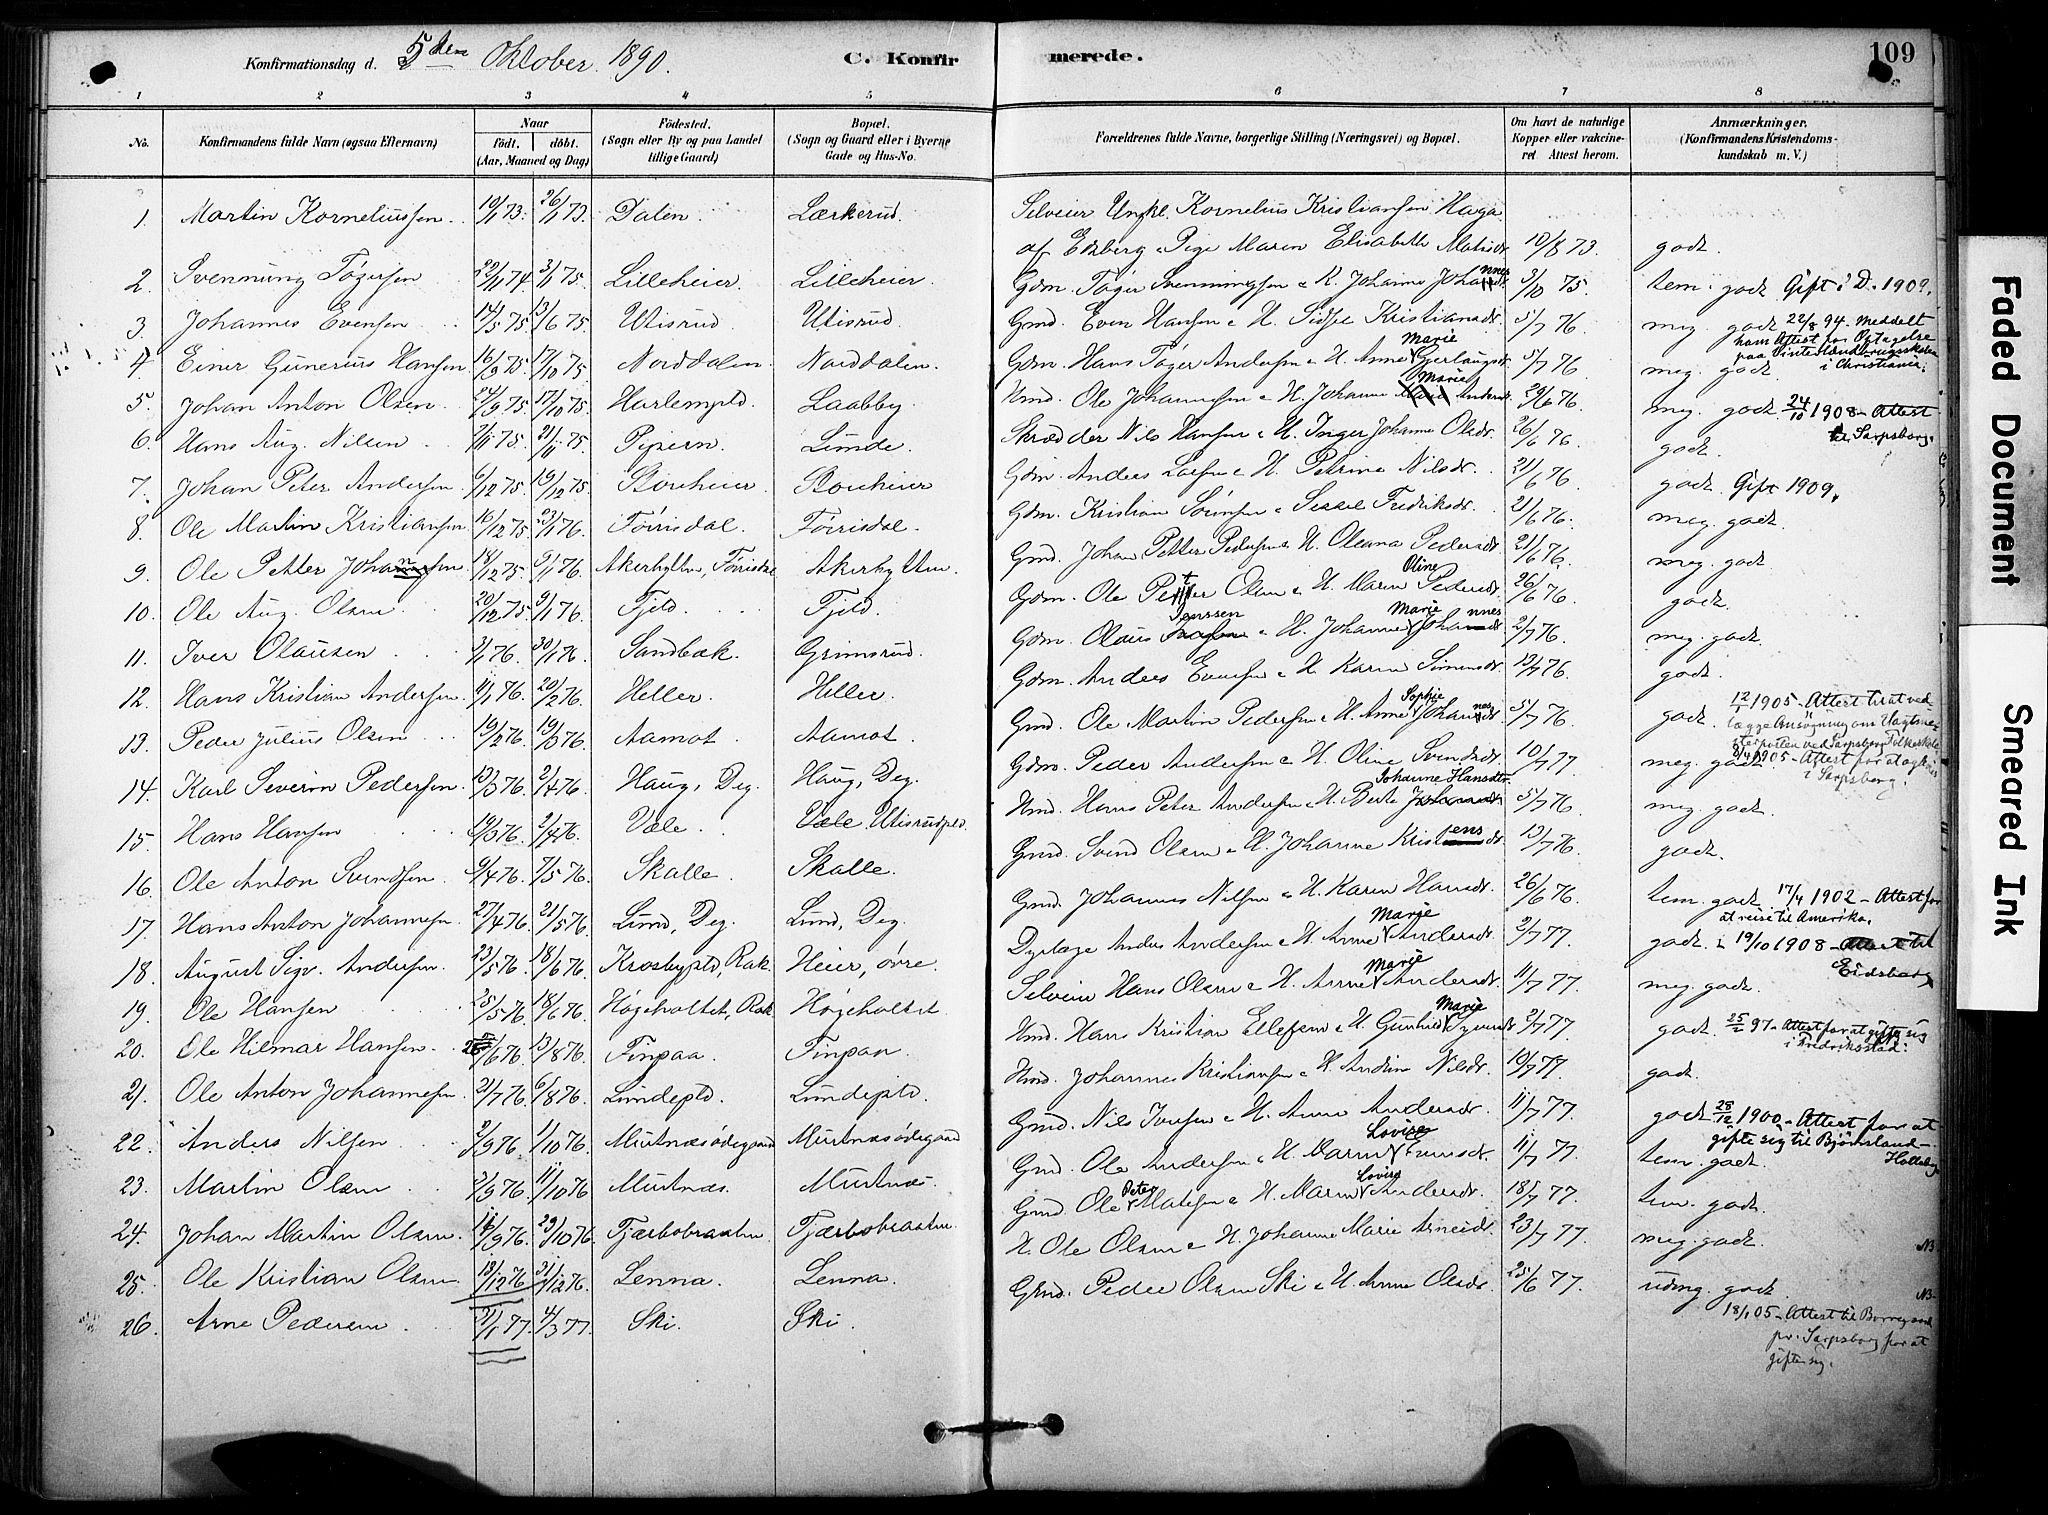 Konfirmationsdag d. 5den Oktober 1890. C. Konfirmerede. 109
1 2 3 4 5 6 7 8
No. Konfirmandens fulde Navn (ogsaa Efternavn) Naar født. døbt. (Aar, Maaned og Dag) Fødested. (Sogn eller By og paa Landet tillige Gaard) Bopæl. (Sogn og Gaard eller i Byerne Gade og Hus-No. Forældrenes fulde Navne, borgerlige Stilling (Næringsvei) og Bopæl. Om havt de naturlige Kopper eller vakcineret Attest herom. Anmærkninger. (Konfirmandens Kristendomskundskab m. V.)
1. Martin Korneliussen 19/1 73. 26/1 73. Dalen Lærkerud. Selveier Ungkl. Kornelius Kristiansen Haga
af Edsberg Pige Maren Elisabeth Matisdr. 10/8 73. godt.
2. Svennung Tøgersen 22/11 74 3/1 75. Lilleheier. Lilleheier. Gdm. Tøger Svenningsen & H. Johanne Johannesdr. 3/10 75. tem. godt Gift i D. 1909.
3. Johannes Evensen 14/5 75 13/6 75. Utisrud Utisrud. Gmd. Even Hansen & H. Sidsel Kristiansdr. 5/7 76. meg. godt 22/8 94. Meddelt ham Attest for Optagelse paa
4. Einer Gunerius Hansen 16/9 75. 17/10 75. Norddalen Norddalen. Gdm. Hans Tøger Andersen & H. Anne Marie 5/7 76. meg. godt. i Christiania.
5. Johan Anton Olsen 24/9 75. 17/10 75. Harlempld. Laabby. Hmd. Ole Johannesen & H. Johanne Marie Andersdr. 29/6 76. meg. godt 24/10 1908 - Attest til Sarpsborg.
6. Hans Aug. Nilsen 2/11 75. 21/11 75. Pipern. Lunde. Skrædder Nils Hansen & H. Inger Johanne Olsdr. 26/6 76. godt.
7. Johan Peter Andersen 6/12 75. 19/12 75. Storeheier. Storeheier Gdm. Anders Larsen & H. Petrine Nilsdr. 21/6 76. godt. Gift 1909.
8. Ole Martin Kristiansen 16/12 75. 23/1 76. Tørrisdal. Tørrisdal. Gdm. Kristian Sørensen & Sessel Fredriksdr. 21/6 76. meg. godt.
9. Ole Petter Johansen 14/12 75. 9/1 76. Akerhytten, Akerhytten. Gmd. Johan Petter Pedersen & H. Oleana Pedersdr. 21/6 76. meg. godt.
10. Ole Aug. Olsen 20/12 75. 9/1 76. Fjeld. Fjeld. Gdm. Ole Petter Olsen & H. Maren Oline Pedersdr. 26/6 76. godt.
11. Iver Olausen 3/1 76. 30/1 76. Sandbæk. Grimsrud. Gdm. Olaus Iverssen & H. Johanne Marie Johannesdr. 2/7 76. meg. godt
12. Hans Kristian Andersen. 11/1 76. 20/2 76. Heller. Heller. Gdm. Anders Evensen & H. Karen Simensdr. 13/7 76. godt.
13. Peder Julius Olsen 19/2 76. 19/3 76. Aamot. Aamot. Gmd. Ole Martin Pedersen & H. Anne Sophie Johannesdr. 5/7 76. godt. 12/1 1905 - Attest til at vedlægge Ansøgning om ved Sarpsborg Folkeskole
14. Karl Severin Pedersen. 13/3 76. 2/4 76. Haug, Deg. Haug, Deg. Gdm. Peder Andersen & H. Oline Svendsdr. 10/7 77. meg. godt. 1905 - Attest for at i Sarpsborg.
15. Hans Hansen 19/3 76. 2/4 76. Væle. Væle Utisrudpld Hmd. Hans Peter Andersen & H. Berte Johanne Hansdtr 5/7 76. meg. godt.
16. Ole Anton Svendsen. 9/4 76. 7/5 76. Skalle. Skalle. Gmd. Svend Olsen & H. Johanne Kristensdr 13/7 76. godt.
17. Hans Anton Johannesen 27/4 76. 21/5 76. Lund, Deg. Lund, Deg. Gmd. Johannes Nilsen & H. Karen Hansdr. 26/6 76. tem. godt. 17/4 1902 - Attest for at reise til Amerika.
18. August Sigv. Andersen. 23/5 76. 18/6 76. Krosbypld, Rak. Heier, øvre. Dyrlæge Anders Andersen & H. Anne Marie Andersdr. 2/7 77. godt. 19/10 1908 - Attest til Eidsberg
19. Ole Hansen 25/5 76. 18/6 76. Høgeholtet, Rak. Høgeholtet. Selveier Hans Olsen & H. Anne Marie Andersdr. 11/7 77. meg. godt.
20. Ole Hilmar Hansen. 25/6 76. 13/8 76. Finpaa. Finpaa. Hmd. Hans Kristian Ellefsen & H. Gunhild Marie 2/7 77. godt. 25/2 97 - Attest for at gifte sig i Fredriksstad.
21. Ole Anton Johannesen 21/7 76. 6/8 76. Lundepld. Lundepld. Hmd. Johannes Kristiansen & H. Andrine Nilsdr. 10/7 77. godt.
22. Anders Nilsen 2/9 76. 1/10 76. Murtnæsødegaard Murtnæsødegaard Gmd. Nils Iversen & H. Anne Andersdr. 11/7 77. godt 28/12 1900 - Attest for at gifte sig til Bjørnsland-
23. Martin Olsen 2/9 76. 11/10 76. Murtnæs. Murtnæs. Gmd. Ole Andersen & H. Maren Lovise Evensdr. 11/7 77. tem. godt.
24. Johan Martin Olsen. 14/9 76. 29/10 76. Fjærbobraaten Fjærbobraaten. Gmd. Ole Peter Matisen & H. Maren Lovise Andersdr. 18/7 77. tem. godt.
25. Ole Kristian Olsen 18/12 76 31/12 76. Lenna. Lenna. H. Ole Olsen & H. Johanne Marie Arnesdr. 23/7 77. meg. godt. NB
26. Arne Pedersen 21/1 77. 4/3 77. Ski. Ski. Gmd. Peder Olsen Ski & H. Anne Olsdr. 25/6 77. udmg. godt. NB.
18/1 05 - Attest til Borregaard
pr. Sarpsborg for at
gifte sig.
Faded Document
Smeared Ink